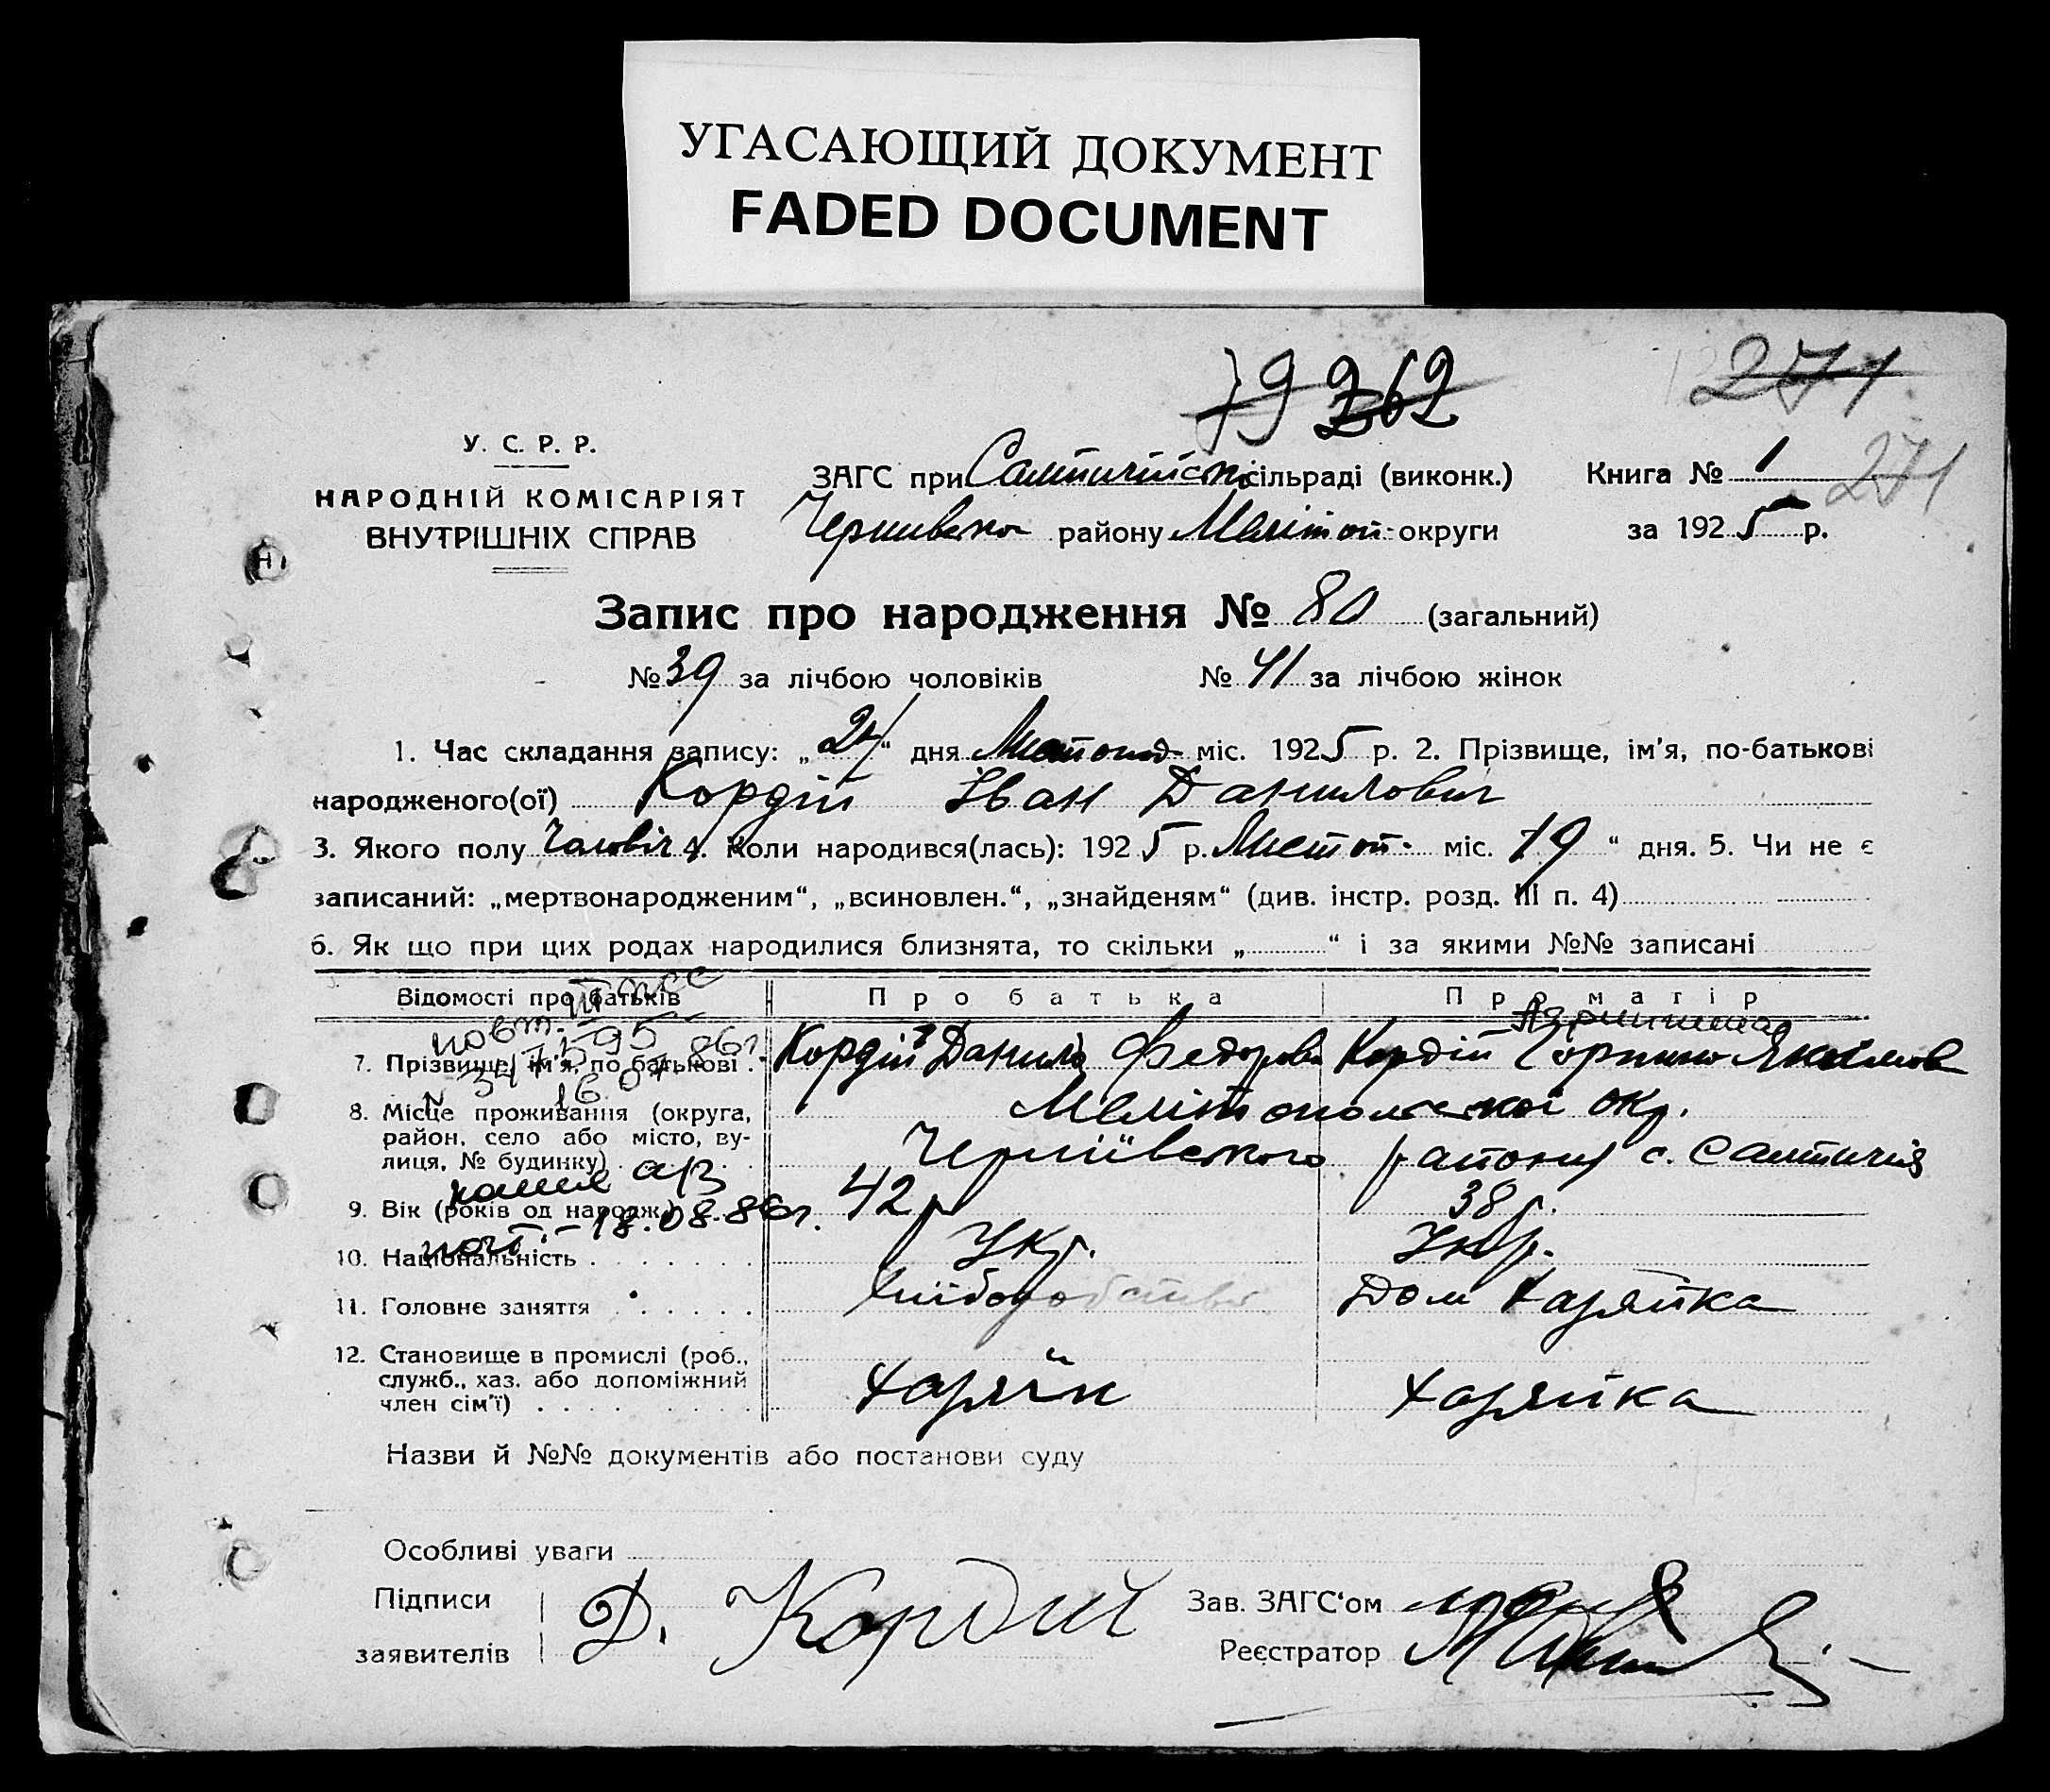 УГАСАЮЩИЙ ДОКУМЕНТ
FADED DOCUMENT
79 262
271
271
У. С. Р. Р.
НАРОДНІЙ КОМІСАРІЯТ
ВНУТРІШНІХ СПРАВ
ЗАГС при сільраді (виконк.)
району Мелітоп. округи
Книга № 1
за 1925 р.
Запис про народження № 80 (загальний)
№ 39 за лічбою чоловіків № 41 за лічбою жінок
1. Час складання запису: „24“ дня Листопад міс. 1925 р. 2. Прізвище, ім'я, по-батькові
народженого(ої) Кордій Іван Данилович
3. Якого полу Чоловіч 4. Коли народився(лась): 1925 р. Листоп. міс. 19 “ дня. 5. Чи не є
записаний: „мертвонародженим“, „всиновлен.“, „знайденям“ (див. інстр. розд. III п. 4)
6. Як що при цих родах народилися близнята, то скільки „ “ і за якими №№ записані
Відомості про батьків Про батька Про матір
повт.
7. Прізвище, ім'я, по батькові . Кордій Данило Федоров Кордій Якимов
16.07.86г.
8. Місце проживання (округа, Мелітопольської окр.
район, село або місто, ву-
лиця, № будинку) . . . района с. Салтичія
9. Вік (років од народж.) 42 р 38 р.
18.08.86г.
10. Національність . . . . . . . Укр. Укр.
11. Головне заняття . . . . . . Хліборобство Дом Хазяйка
12. Становище в промислі (роб.,
служб., хаз. або допоміжний Хазяїн Хазяйка
член сім'ї) . . . . . . . .
Назви й №№ документів або постанови суду
Особливі уваги
Підписи
заявителів
Д. Кордий
Зав. ЗАГС'ом
Реєстратор